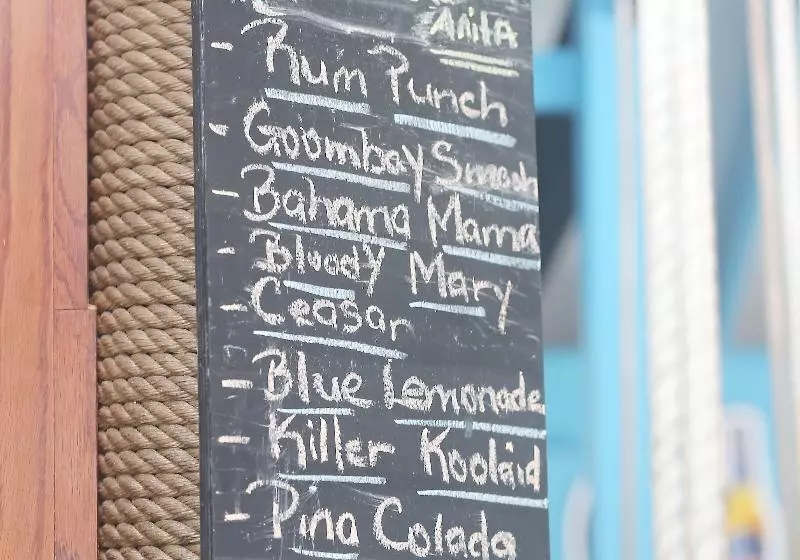 Anita
- Rum Punch
- Goombay Smash
- Bahama Mama
- Bloody Mary
- Ceasar
- Blue Lemonade
- Killer Koolaid
- Pina Colada